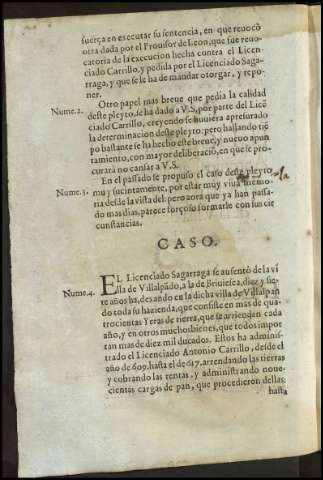 fuerça en executar su sentencia, en que reuocò
otra dada por el Prouisor de Leon, que fue reuo-
catoria de la execucion hecha contra el Licen-
ciado Carrillo, y pedida por el Licenciado Saga-
rraga, y que se le ha de mandar otorgar, y repo-
ner.
Nume. 2. Otro papel mas breue que pedia la calidad
deste pleyto, se ha dado a V.S. por parte del Licẽ
ciado Carrillo, creyendo se huuiera apresurado
la determinacion deste pleyto: pero hallando tiẽ
po bastante se ha hecho este breue, y nueuo apun
tamiento, con mayor deliberaciõ, en que se pro-
curarà no cansar a V.S.
Nume. 3. En el passado se propuso el caso deste pleyto
muy sucintamente, por estar muy viua la memo-
ria desde la vista del: pero aora que ya han passa-
do mas dias, parece forçoso formarle con sus cir
cunstancias.
CASO.
Nume. 4. EL Licenciado Sagarraga se ausentò de la vi
lla de Villalpãdo, a la de Briuiesca, diez y sie-
te años ha, dexando en la dicha villa de Villalpan
do toda su hazienda, que consiste en mas de qua-
trocientas Yeras de tierra, que se arriendan cada
año, y en otros muchos bienes, que todos impor
tan mas de diez mil ducados. Estos ha adminis-
trado el Licenciado Antonio Carrillo, desde el
año de 609. hasta el de 617. arrendando las tierras
y cobrando las rentas, y administrando noue-
cientas cargas de pan, que procedieron dellas:
hasta